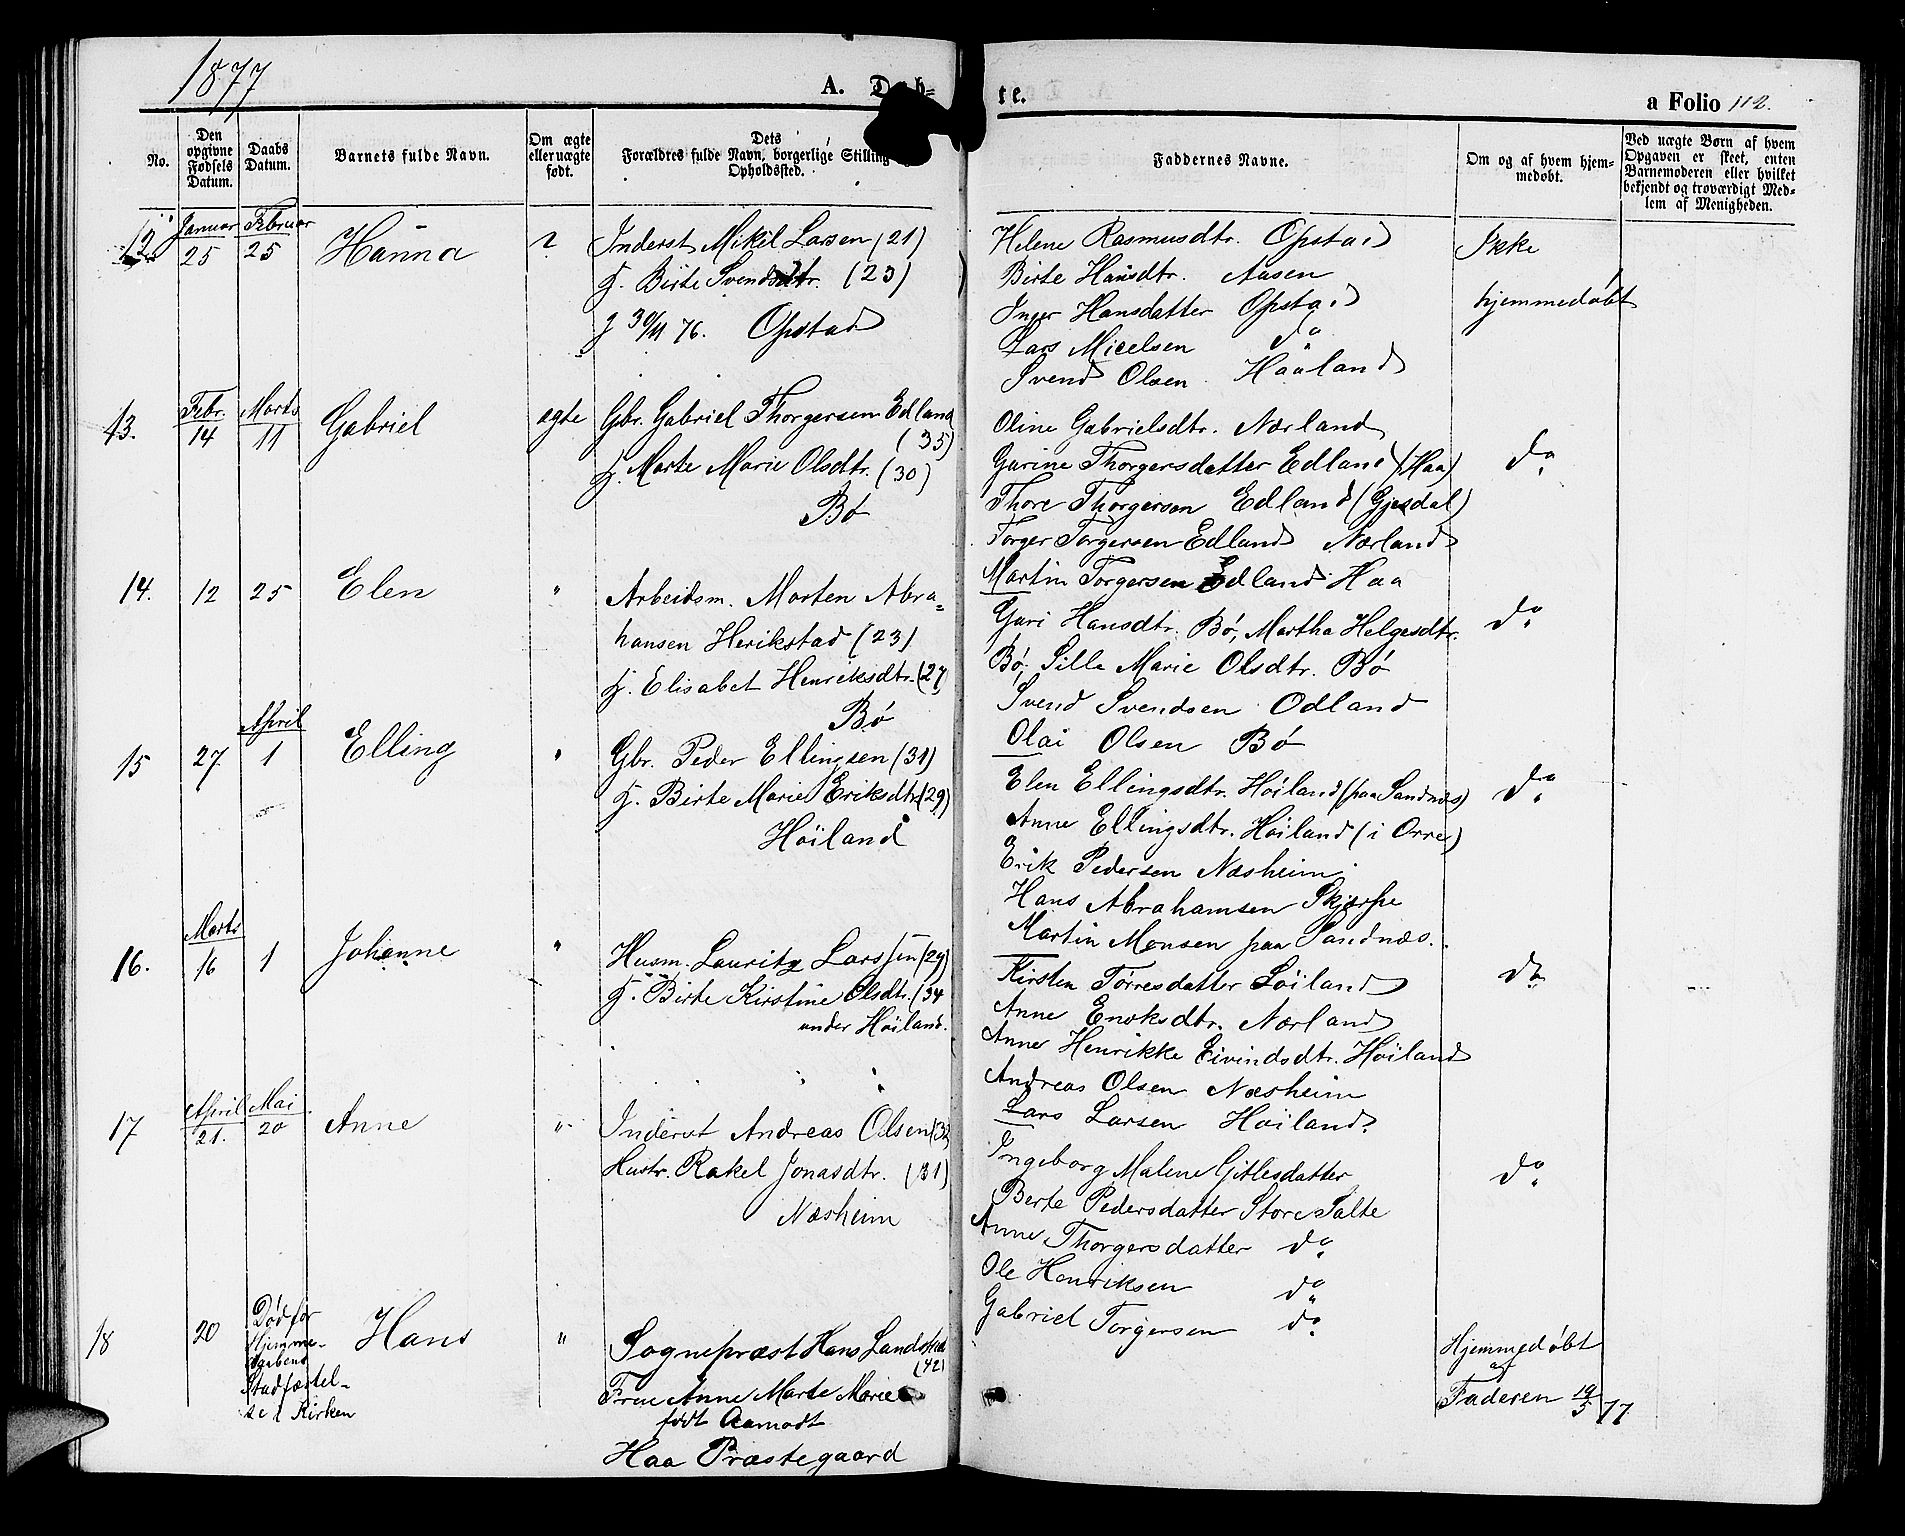 1877
A. Døb-
te.
a Folio 112.
No.
Den opgivne Fødsels Datum.
Daabs Datum.
Barnets fulde Navn.
Om ægte eller uægte født.
Dets Forældres fulde Navn, borgerlige Stilling
Opholdssted.
Faddernes Navne.
Om og af hvem hjem-
medøbt.
Ved uægte Børn af hvem
Opgaven er skeet, enten
Barnemoderen eller hvilket
bekjendt og troværdigt Med-
lem af Menigheden.
12 Januar 25 Februar 25 Hanna ? Inderst Mikel Larsen (21)
H. Birte Svendsdtr. (23)
g 30/11 76. Opstad
Helene Rasmusdtr. Opstad
Birte Hansdtr. Aasen
Inger Hansdatter Opstad
Lars Micelsen do
Svend Olsen Haaland
Ikke
hjemmedøbt
13. Febr. 14 Marts 11 Gabriel ægte Gbr. Gabriel Thorgersen Edland
(35)
H. Marte Marie Olsdtr. (30)
Bø
Oline Gabrielsdtr. Nærland
Gurine Thorgersdatter Edland (Haa)
Thore Thorgersen Edland (Gjesdal)
Torger Torgersen Edland Nærland
Martin Torgersen Edland Haa
do
14. 12 25 Elen " Arbeidsm. Morten Abra-
hansen Herikstad (23)
H. Elisabet Henriksdtr. (27)
Bø
Guri Hansdtr. Bø, Martha Helgesdtr.
Bø, Sille Marie Olsdtr. Bø
Svend Svendsen Odland
Olai Olsen Bø
do
15 27 April 1 Elling " Gbr. Peder Ellingsen (31)
H. Birte Marie Eriksdtr. (29)
Høiland
Elen Ellingsdtr. Høiland (paa Sandnæs)
Anne Ellingsdtr. Høiland (i Orre)
Erik Pedersen Næsheim
Hans Abrahamsen Skjærpe
Martin Monsen paa Sandnæs.
do
16. Marts 16 1 Johanne " Husm. Lauritz Larssen (29)
H. Birte Kirstine Olsdtr. (34
under Høiland.
Kirsten Tørresdatter Løiland
Anne Enoksdtr. Nærland
Anne Henrikke Eivindsdtr. Høiland
Andreas Olsen Næsheim
Lars Larsen Høiland
do
17 April 21. Mai 20 Anne " Inderst Andreas Olsen
Hustr. Rakel Jonasdtr. (31)
Næsheim
Ingeborg Malene Gitlesdatter
Berte Pedersdatter Store Salte
Anne Thorgersdatter do
Ole Henriksen do
Gabriel Torgersen do
do
18 20 Død før
Hjemme-
daabens
Stadfæstel-
se i Kirken
Hans " Sognepræst Hans Landsted
(42)
Frue Anne Marte Marie
født Aamodt
Haa Præstegaard
Hjemmedøbt
af
Faderen 19/5 77